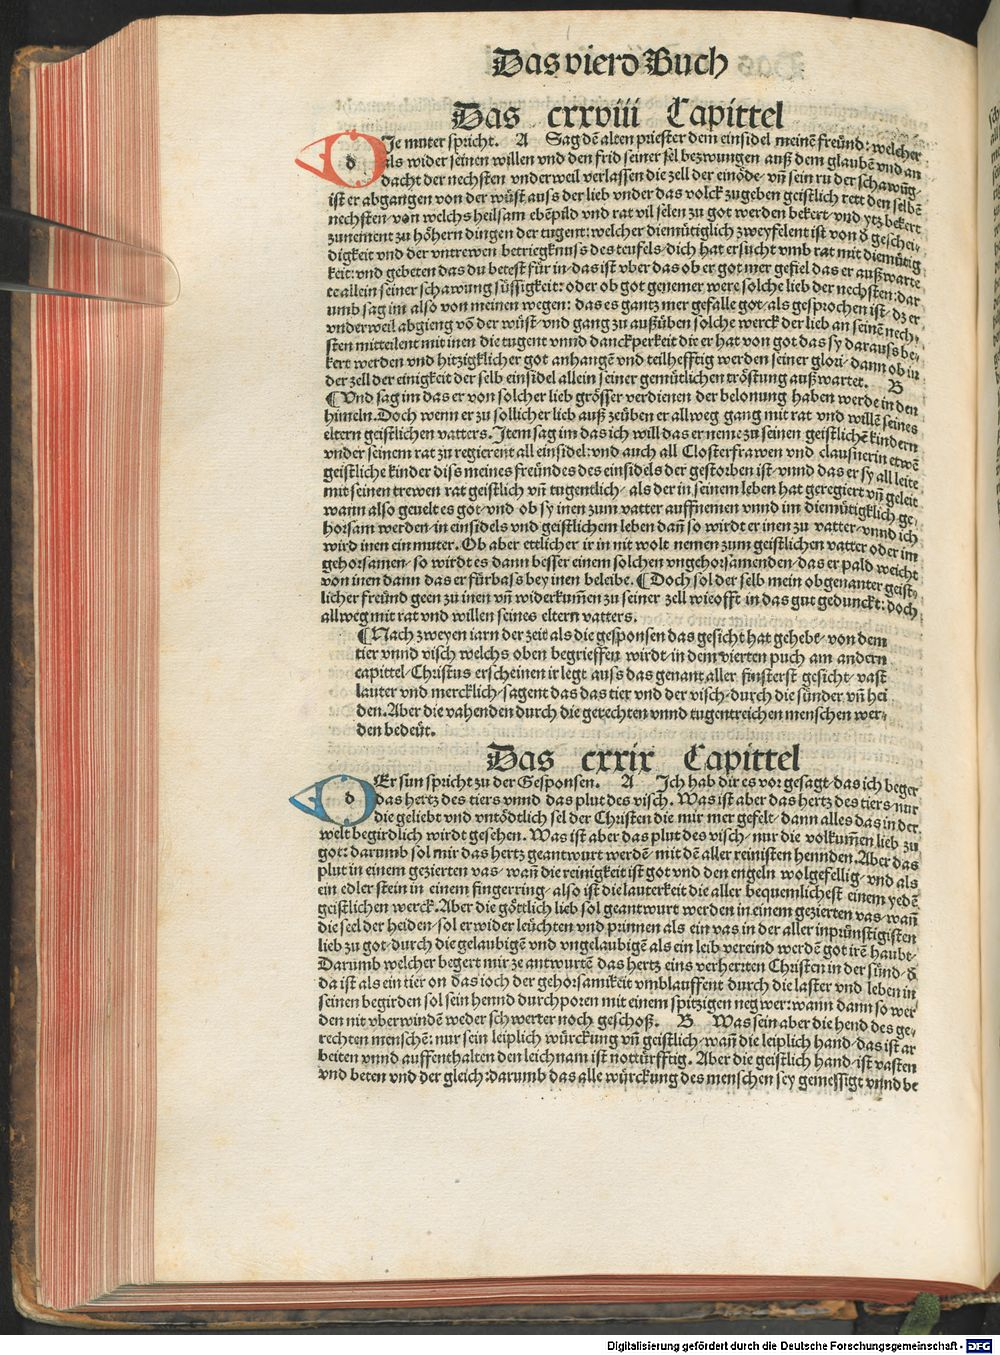 Das vierd Buch
Das cxxviii Capittel
d Je muter spricht. A Sag dē alten priester dem einsidel meinē freünd: welcher
als wider seinen willen vnd den frid seiner sel bezwungen auß dem glaubē vnd an
dacht der nechsten vnderweil verlassen die zell der einöde/ vn̄ sein ru der schawūg/
ist er abgangen von der wüst auss der lieb vnder das volck zugeben geistlich rett den selbē
nechsten/ von welchs heilsam ebēpild vnd rat vil selen zu got werden bekert/ vnd ytz bekert
zunement zu höhern dingen der tugent: welcher diemütiglich zweyfelent ist von d̄ geschei/
digkeit vnd der vntrewen betriegknuss des teufels/ dich hat ersucht vmb rat mit diemütig
keit: vnd gebeten das du betest für in/ das ist vber das ob er got mer gefiel das er außwarte
te allein seiner schawung süssigkeit: oder ob got genemer were solche lieb der nechsten: dar
umb sag im also von meinen wegen: das es gantz mer gefalle got/ als gesprochen ist/ dz er
vnderweil abgieng vō der wüst/ vnd gang zu außüben solche werck der lieb an seinē nech/
sten mitteilent mit inen die tugent vnnd danckperkeit die er hat von got das sy darauss be/
kert werden vnd hitzigklicher got anhangē vnd teilhefftig werden seiner glori/ dann ob in
der zell der einigkeit der selb einsidel allein seiner gemütlichen tröstung außwartet. B
¶ Vnd sag im das er von solcher lieb grösser verdienen der belonung haben werde in den
himeln. Doch wenn er zu sollicher lieb auß zeüben er allweg gang mit rat vnd willē seines
eltern geistlichen vatters. Item sag im das ich will das er neme zu seinen geistlichē kindern
vnder seinem rat zu regierent all einsidel: vnd auch all Closterfrawen vnd clausnerin etwē
geistliche kinder diss meines freündes des einsidels der gestorben ist/ vnnd das er sy all leite
mit seinen trewen rat geistlich vn̄ tugentlich/ als der in seinem leben hat geregiert vn̄ geleit
wann also geuelt es got/ vnd ob sy inen zum vatter auffnemen vnnd im diemütigklich ge/
horsam werden/ in einsidels vnd geistlichem leben dan̄ so wirdt er inen zu vatter/ vnnd ich
wird inen ein muter. Ob aber ettlicher ir in nit wolt nemen zum geistlichen vatter oder im
gehorsamen/ so wirdt es dann besser einem solchen vngehorsamenden/ das er pald weicht
von inen dann das er fürbass bey inen beleibe. ¶ Doch sol der selb mein obgenanter geist/
licher freünd geen zu inen vn̄ widerkum̄en zu seiner zell wieofft in das gut gedunckt: doch
allweg mit rat vnd willen seines eltern vatters.
¶ Nach zweyen iarn der zeit als die gesponsen das gesicht hat gehebt/ von dem
tier vnnd visch welchs oben begrieffen wirdt/ in dem vierten puch am andern
capittel/ Christus erscheinen ir legt auss das genant aller finsterst gesicht/ vast
lauter vnd mercklich/ sagent das das tier vnd der visch/ durch die sünder vn̄ hei
den. Aber die vahenden durch die gerechten vnnd tugentreichen menschen wer/
den bedeüt.
Das cxxix Capittel
d Er sun spricht zu der Gesponsen. A Ich hab dir es vor gesagt/ das ich beger
das hertz des tiers vnnd das plut des visch. Was ist aber das hertz des tiers/ nur
die geliebt vnd vntödtlich sel der Christen die mir mer gefelt/ dann alles das in der
welt begirdlich wirdt gesehen. Was ist aber das plut des visch/ nur die volkum̄en lieb zu
got: darumb sol mir das hertz geantwurt werdē/ mit dē aller reinisten hennden. Aber das
plut in einem gezierten vas/ wan̄ die reinigkeit ist got vnd den engeln wolgefellig/ vnd als
ein edler stein in einem fingerring/ also ist die lauterkeit die aller bequemlichest einem yedē
geistlichen werck. Aber die göttlich lieb sol geantwurt werden in einem gezierten vas/ wan̄
die seel der heiden/ sol er wider leüchten vnd prinnen als ein vas in der aller inprünstigisten
lieb zu got/ durch die gelaubigē vnd vngelaubigē als ein leib vereind werdē got irē haubt/
Darumb welcher begert mir ze antwurtē das hertz eins verherrten Christen in der sünd/ d̄
da ist als ein tier on das ioch der gehorsamikeit vmblauffent durch die laster vnd leben in
seinen begirden sol sein hennd durchporen mit einem spitzigen negwer: wann dann so wer
den nit vberwindē weder schwerter noch geschoß. B Was sein aber die hend des ge/
rechten menschē: nur sein leiplich würckung vn̄ geistlich/ wan̄ die leiplich hand/ das ist ar
beiten vnnd auffenthalten den leichnam ist notturfftig. Aber die geistlich hand/ ist vasten
vnd beten vnd der gleich: darumb das alle würckung des menschen sey gemessigt vnnd be
Digitalisierung gefördert durch die Deutsche Forschungsgemeinschaft - DFG